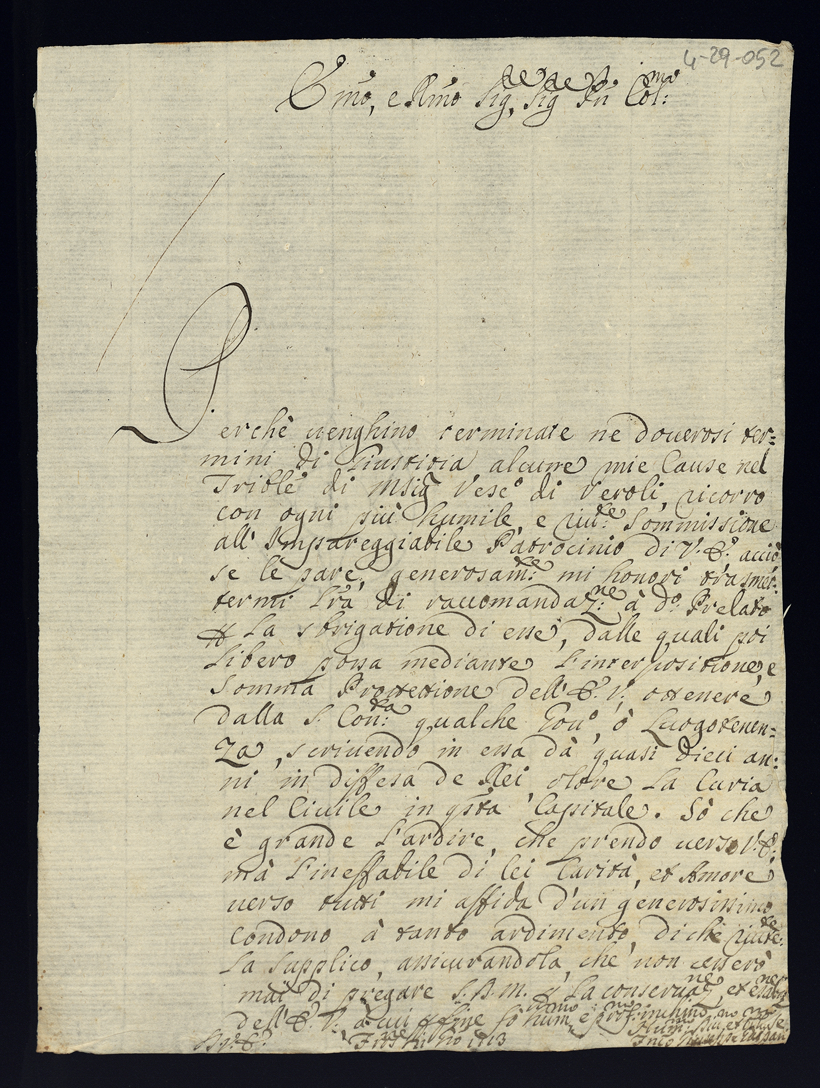 4-29-052
Emo, e Rmo Sig.re, Sig.re Pn Col:mo
Perchè uenghino terminate ne douerosi ter=
mini di Giustitia alcune mie Cause nel
Trible di Msig Vesc.o di Veroli, ricorro
con ogni più humile, e riu.te Sommissione
all' Impareggiabile Patrocinio di V.E. acciò
se le pare, generosam.te mi honori trasmet=
termi Lra di raccomandaz.ne à d.o Prelato
La sbrigatione di esse, dalle quali poi
libero possa mediante l'interpositione, e
Somma Protettione dell'E.V. ottenere
dalla S. Con.ta qualche Gou.o, ò Luogotenen=
za, scriuendo in essa dà quasi dieci an=
ni in diffesa de Rei, oltre La Curia
nel Ciuile in qsta Capitale. Sò che
è grande l'ardire, che prendo uerso V.E.
mà l'ineffabile di lei Carità, et Amore
uerso tutti mi affida d'un generosissimo
condono à tanto ardimento, di che riu.te
La supplico, assicurandola, che non cesserò
mai di pregare S.D.M. La conseruaz.ne, et
dell'E.V. à cui fine fò hum.mo e prof.mo inchino
1713